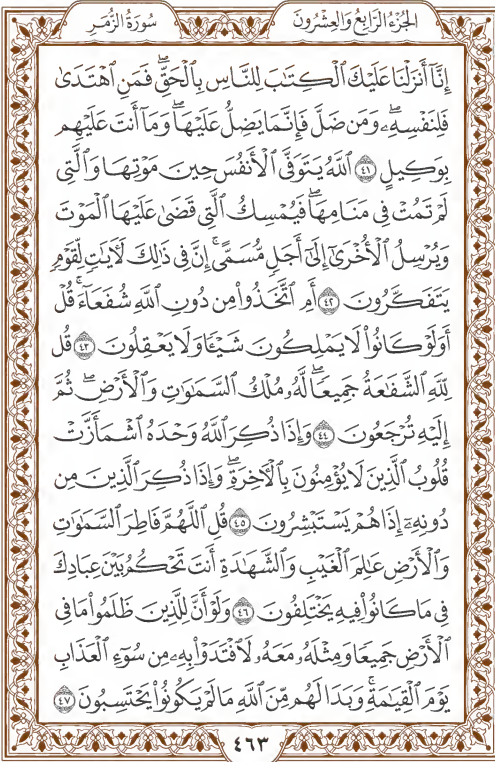 الجزء الرابع والعشرون سورة الزمر
إِنَّآ أَنزَلۡنَا عَلَيۡكَ ٱلۡكِتَٰبَ لِلنَّاسِ بِٱلۡحَقِّۖ فَمَنِ ٱهۡتَدَىٰ
فَلِنَفۡسِهِۦۖ وَمَن ضَلَّ فَإِنَّمَا يَضِلُّ عَلَيۡهَاۖ وَمَآ أَنتَ عَلَيۡهِم
بِوَكِيلٍ ٤١ ٱللَّهُ يَتَوَفَّى ٱلۡأَنفُسَ حِينَ مَوۡتِهَا وَٱلَّتِي
لَمۡ تَمُتۡ فِي مَنَامِهَاۖ فَيُمۡسِكُ ٱلَّتِي قَضَىٰ عَلَيۡهَا ٱلۡمَوۡتَ
وَيُرۡسِلُ ٱلۡأُخۡرَىٰٓ إِلَىٰٓ أَجَلٖ مُّسَمًّىۚ إِنَّ فِي ذَٰلِكَ لَأٓيَٰتٖ لِّقَوۡمٖ
يَتَفَكَّرُونَ ٤٢ أَمِ ٱتَّخَذُواْ مِن دُونِ ٱللَّهِ شُفَعَآءَۚ قُلۡ
أَوَلَوۡ كَانُواْ لَا يَمۡلِكُونَ شَيۡـٔٗا وَلَا يَعۡقِلُونَ ٤٣ قُل
لِّلَّهِ ٱلشَّفَٰعَةُ جَمِيعٗاۖ لَّهُۥ مُلۡكُ ٱلسَّمَٰوَٰتِ وَٱلۡأَرۡضِۖ ثُمَّ
إِلَيۡهِ تُرۡجَعُونَ ٤٤ وَإِذَا ذُكِرَ ٱللَّهُ وَحۡدَهُ ٱشۡمَأَزَّتۡ
قُلُوبُ ٱلَّذِينَ لَا يُؤۡمِنُونَ بِٱلۡأٓخِرَةِۖ وَإِذَا ذُكِرَ ٱلَّذِينَ مِن
دُونِهِۦٓ إِذَا هُمۡ يَسۡتَبۡشِرُونَ ٤٥ قُلِ ٱللَّهُمَّ فَاطِرَ ٱلسَّمَٰوَٰتِ
وَٱلۡأَرۡضِ عَٰلِمَ ٱلۡغَيۡبِ وَٱلشَّهَٰدَةِ أَنتَ تَحۡكُمُ بَيۡنَ عِبَادِكَ
فِي مَا كَانُواْ فِيهِ يَخۡتَلِفُونَ ٤٦ وَلَوۡ أَنَّ لِلَّذِينَ ظَلَمُواْ مَا فِي
ٱلۡأَرۡضِ جَمِيعٗا وَمِثۡلَهُۥ مَعَهُۥ لَٱفۡتَدَوۡاْ بِهِۦ مِن سُوٓءِ ٱلۡعَذَابِ
يَوۡمَ ٱلۡقِيَٰمَةِۚ وَبَدَا لَهُم مِّنَ ٱللَّهِ مَا لَمۡ يَكُونُواْ يَحۡتَسِبُونَ ٤٧
٤٦٣